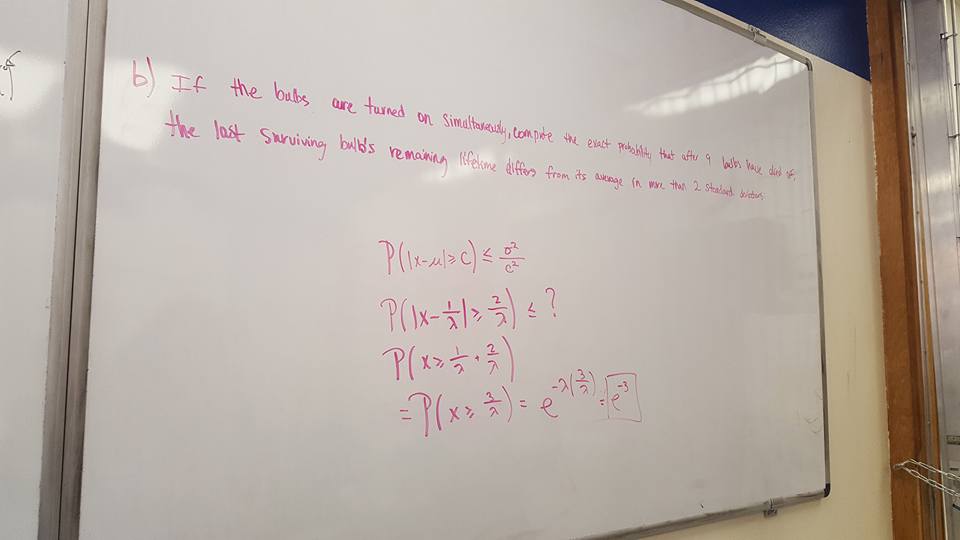 b) If the bulbs are turned on simultaneously, compute the exact probability that after 9 bulbs have died off,
the last surviving bulb's remaining lifetime differs from its average in more than 2 standard deviations
P(|x-μ|≥c) ≤ σ²/c²
P(|x-1/λ|≥2/λ) ≤ ?
P(x≥1/λ+2/λ)
=P(x≥3/λ) = e^(-λ(3/λ)) = e^(-3)